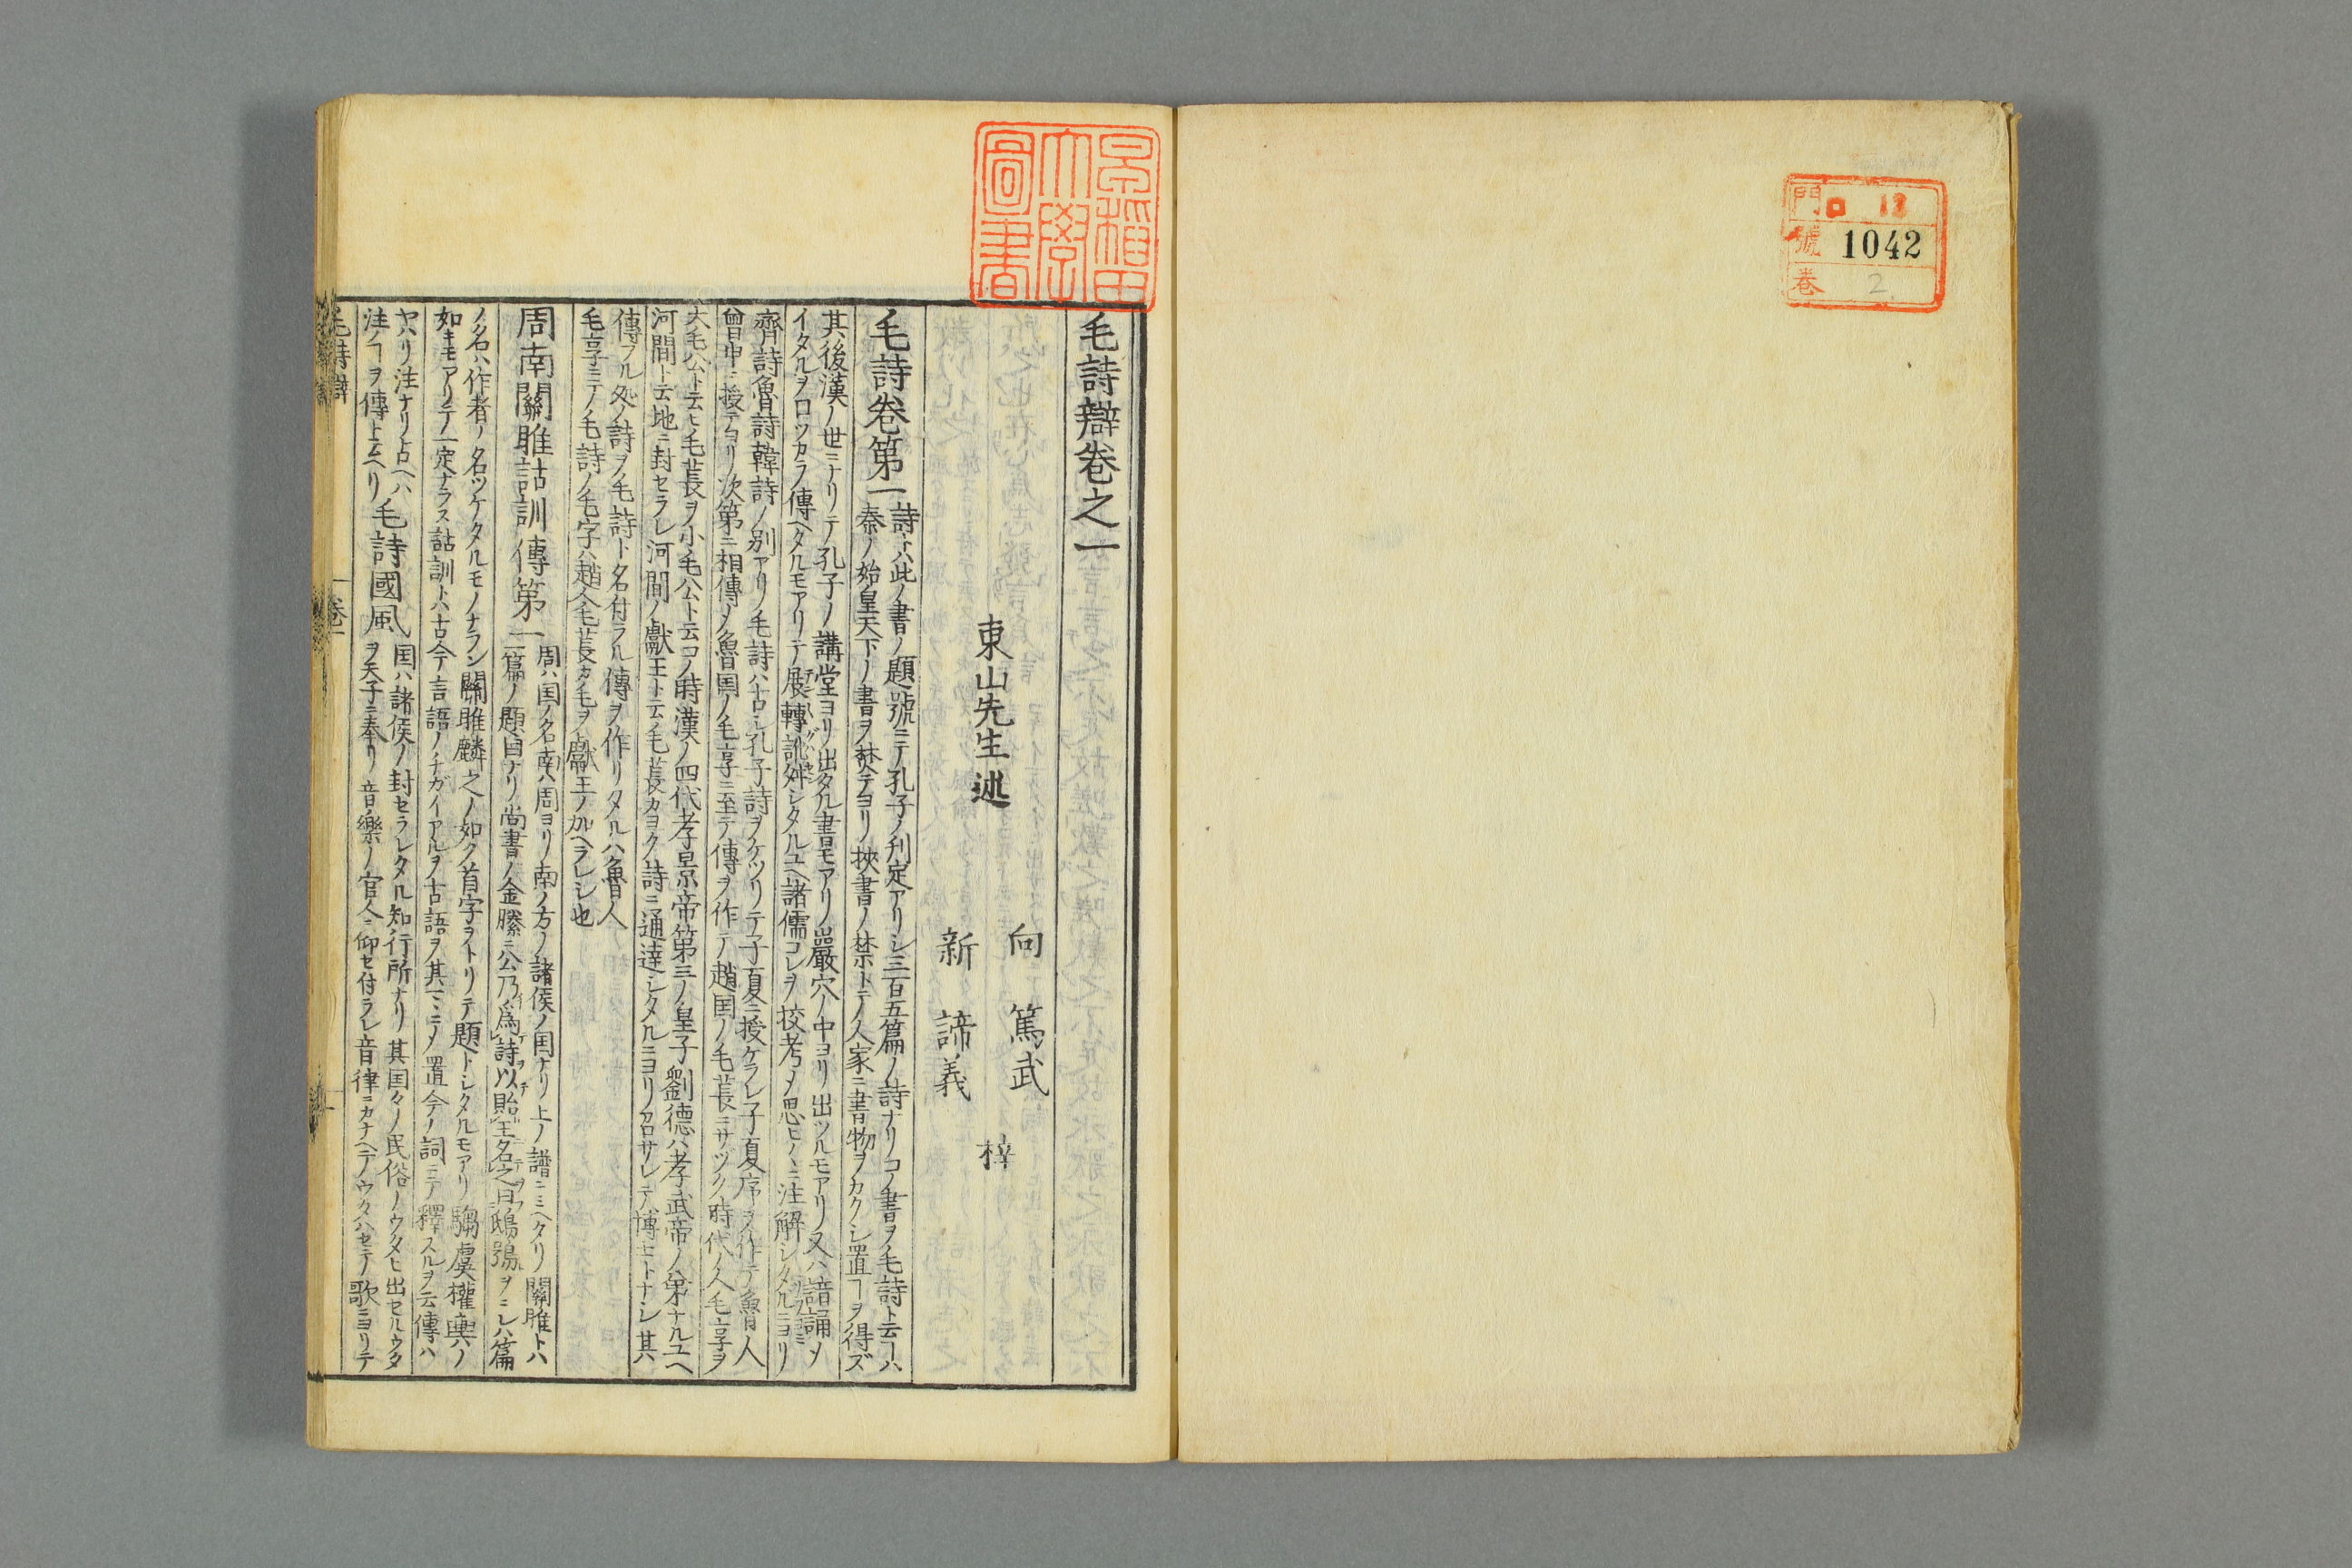 門 ロ 12
號 1042
卷 2
早稲田
大學
圖書
毛詩辯卷之一
東山先生述
向 篤武
新 諦義
梓
毛詩卷第一
詩トハ此ノ書ノ題號ニテ孔子ノ刋定アリシ三百五篇ノ詩ナリコノ書ヲ毛詩ト云ヿハ
秦ノ始皇天下ノ書ヲ焚テヨリ挾書ノ禁トテ人家ニ書物ヲカクシ置ヿヲ得ズ
其後漢ノ世ニナリテ孔子ノ講堂ヨリ出タル書モアリ嚴穴ノ中ヨリ出ツルモアリ又ハ諳誦メ
イタルヲ口ツカラ傳ヘタルモアリテ展轉訛舛シタルユヘ諸儒コレヲ校考メ思ヒ〳〵ニ注解シタルニヨリ
齊詩魯詩韓詩ノ別アリ毛詩ハ孔子詩ヲケツリテ子夏ニ授ケラレ子夏序ヲ作テ魯人
曾申ニ授テヨリ次第ニ相傳メ魯国ノ毛亨ニ至テ傳ヲ作テ趙国ノ毛萇ニサヅク時代ノ人毛亨ヲ
大毛公ト云ヒ毛萇ヲ小毛公ト云コノ時漢ノ四代孝景帝第三ノ皇子劉德ハ孝武帝ノ弟ナルユヘ
河間ト云地ニ封セラレ河間ノ獻王ト云毛萇カヨク詩ニ通達シタルニヨリ召サレテ博士トナシ其
傳フル処ノ詩ヲ毛詩ト名付ラル傳ヲ作リタルハ魯人
毛亨ニテ毛詩ノ毛字ハ趙人毛萇カ毛ヲ獻王ノ加ヘラレシ也
周南關雎詁訓傳第一
周ハ国ノ名南ハ周ヨリ南ノ方ノ諸侯ノ国ナリ上ノ譜ニミヘタリ關雎トハ
一篇ノ題目ナリ尚書ノ金縢ニ公乃爲詩以貽王名之曰鴟鴞ヲミレハ篇
ノ名ハ作者ノ名ツケタルモノナラン關雎麟之ノ如ク首字ヲトリテ題トシタルモアリ騶虞權輿ノ
如キモアリテ一定ナラス詁訓トハ古今言語ノチガイアルヲ古語ヲ其マヽニメ置今ノ詞ニテ釋スルヲ云傳ハ
ヤハリ注ナリ占ヘハ
注ノヿヲ傳ト云ヘリ
毛詩國風
国ハ諸侯ノ封セラレタル知行所ナリ其国々ノ民俗ノウタヒ出セルウタ
ヲ天子ニ奉リ音樂ノ官人ニ仰セ付ラレ音律ニカナヘテウタハセテ歌ニヨリテ
毛詩辯
卷一
一